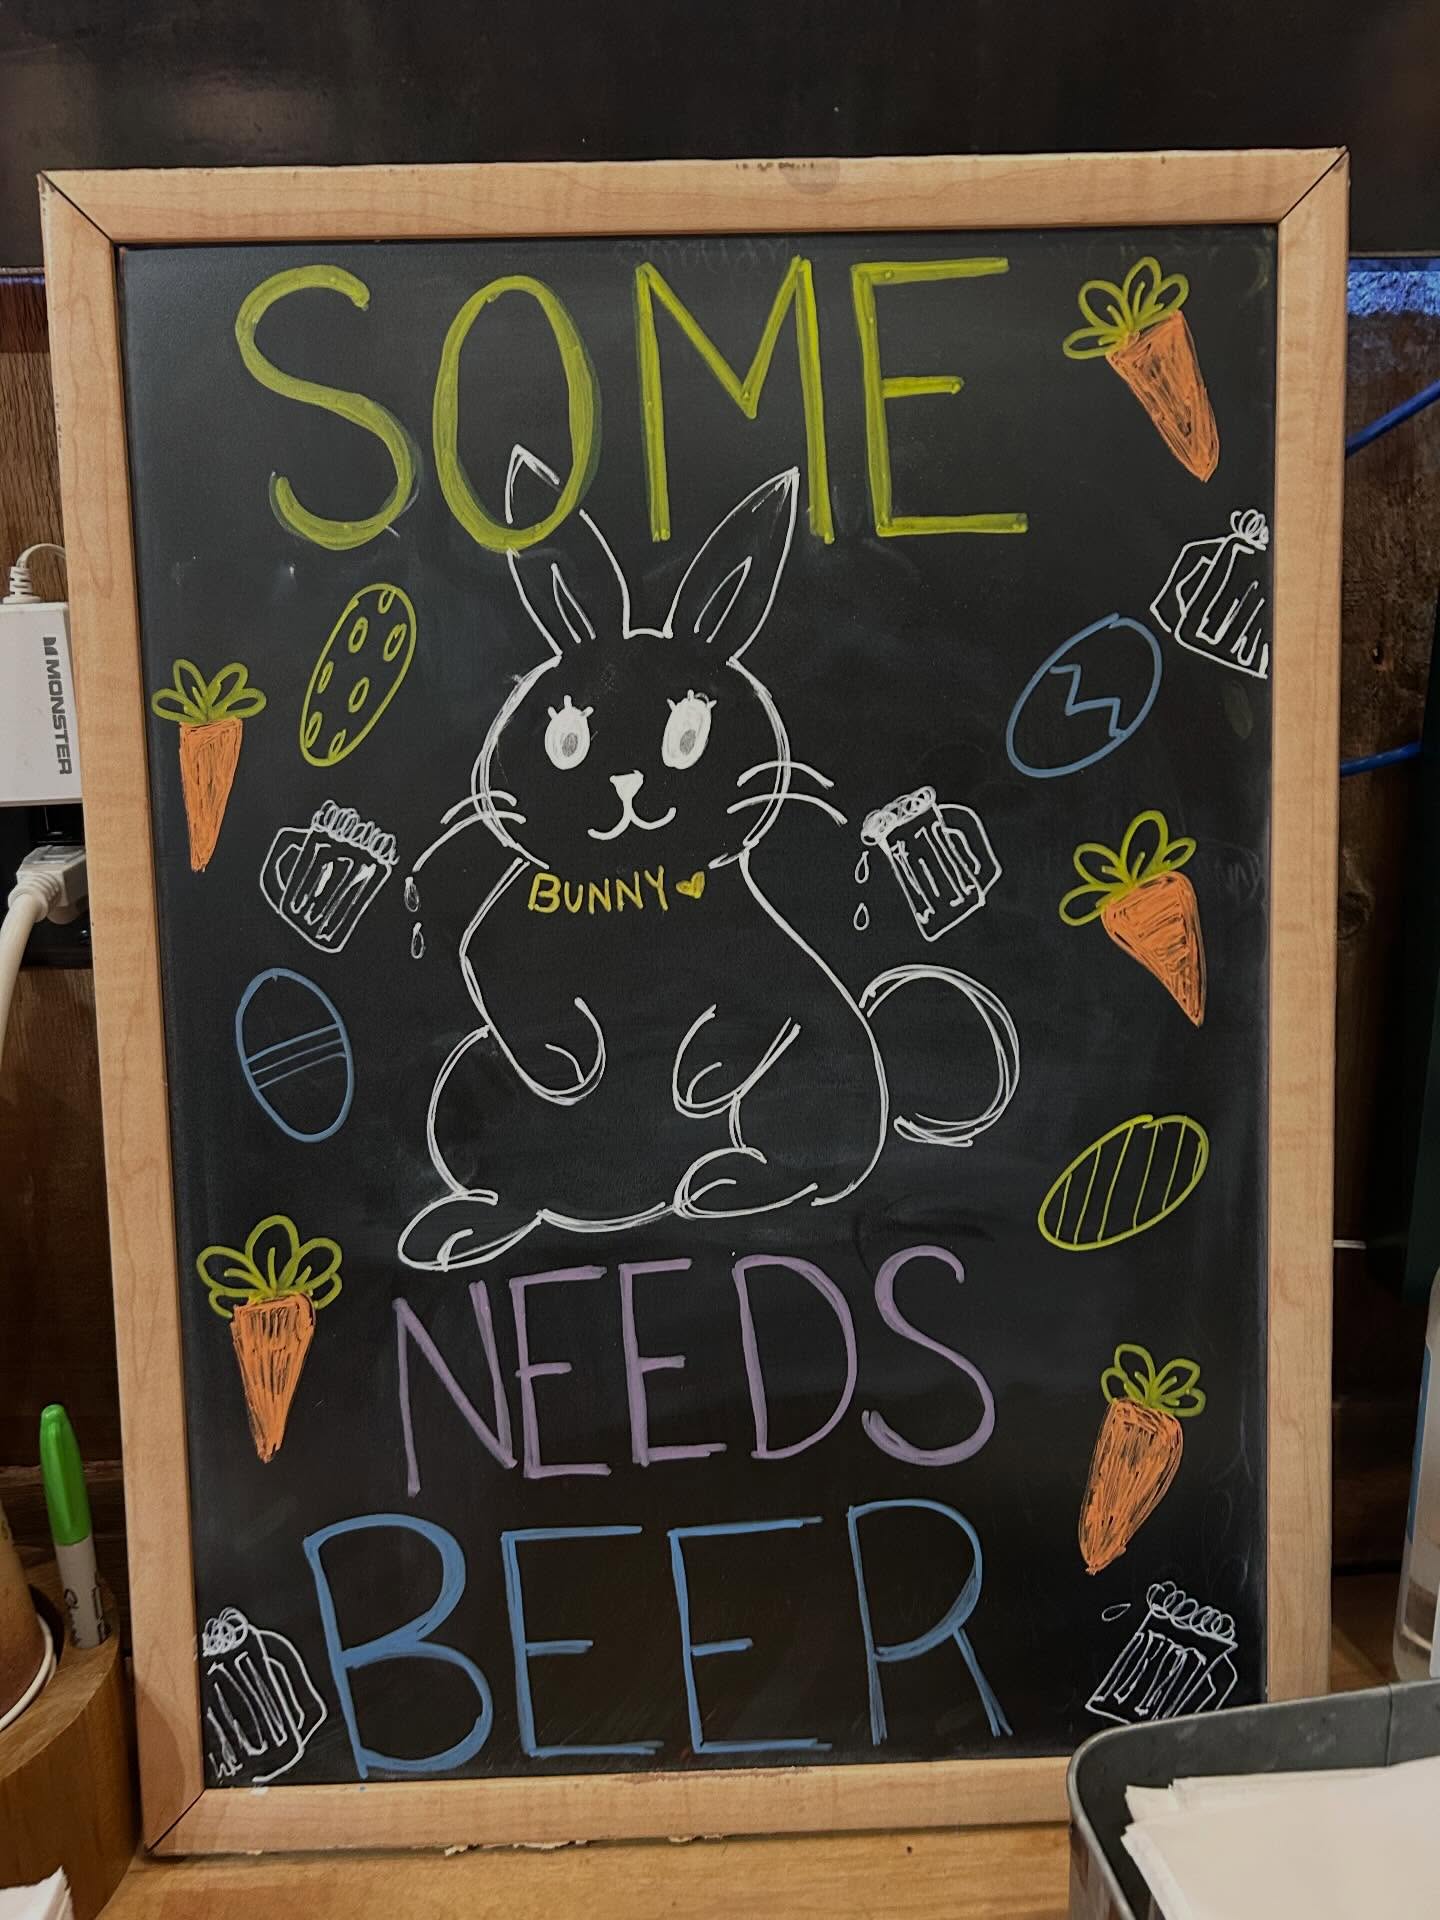 SOME
BUNNY
NEEDS
BEER
MONSTER